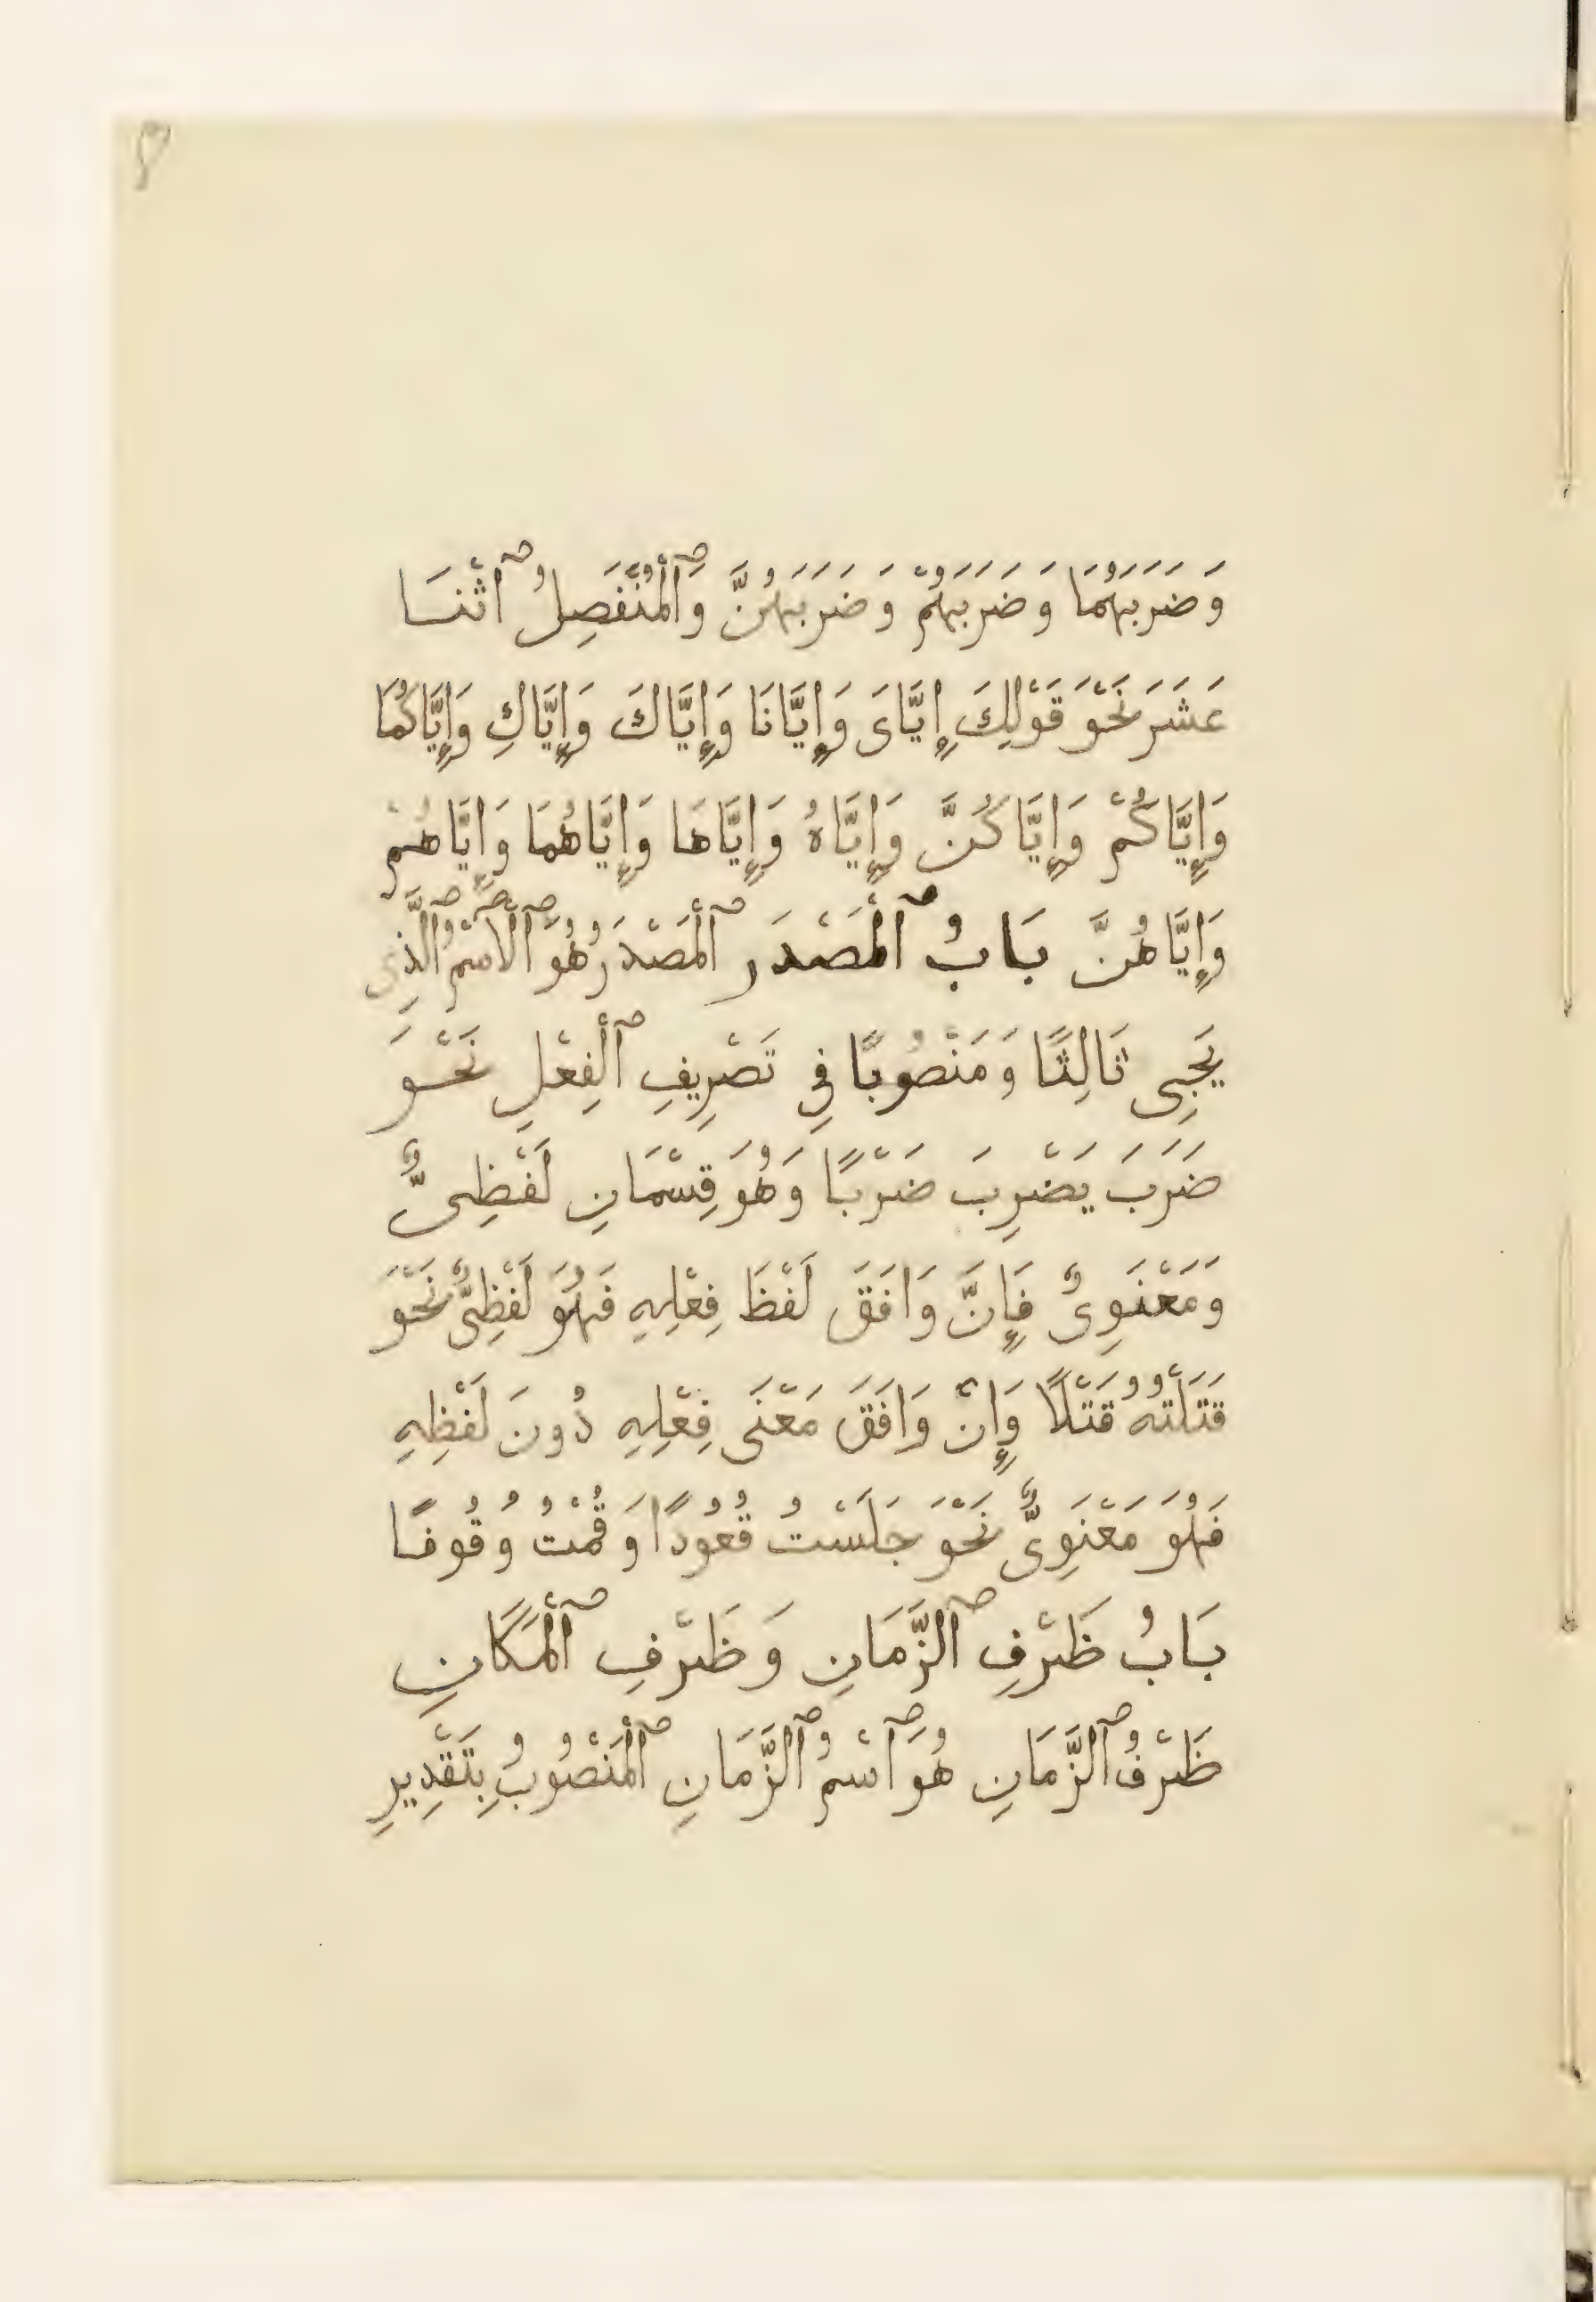 وَضَرَبَهُمَا وَضَرَبَهُمْ وَضَرَبَهُنَّ وَٱلْمُنْفَصِلُ ٱثْنَا
عَشَرَ نَحْوَ قَوْلِكَ إِيَّاىَ وَإِيَّانَا وَإِيَّاكَ وَإِيَّاكِ وَإِيَّاكُمَا
وَإِيَّاكُمْ وَإِيَّاكُنَّ وَإِيَّاهُ وَإِيَّاهَا وَإِيَّاهُمَا وَإِيَّاهُمْ
وَإِيَّاهُنَّ بَابُ ٱلْمَصْدَر ٱلْمَصْدَرُ هُوَ ٱلْاسْمُ ٱلَّذِى
يَجِى ثَالِثًا وَمَنْصُوبًا فِى تَصْرِيفِ ٱلْفِعْلِ نَحْوَ
ضَرَبَ يَضْرِبَ ضَرْبًا وَهُوَ قِسْمَانِ لَفْظِىٌّ
وَمَعْنَوِىٌّ فَإِنَّ وَافَقَ لَفْظَ فِعْلِهِ فَهُوَ لَفْظِىٌّ نَحْوَ
قَتَلْتُهُ قَتْلًا وَإِنْ وَافَقَ مَعْنَى فِعْلِهِ دُونَ لَفْظِهِ
فَهُوَ مَعْنَوِىٌّ نَحْوَ جَلَسْتُ قُعُودًا وَقُمْتُ وُقُوفًا
بَابُ ظَرْفِ ٱلزَّمَانِ وَظَرْفِ ٱلْمَكَانِ
ظَرْفُ ٱلزَّمَانِ هُوَ ٱسْمُ ٱلزَّمَانِ ٱلْمَنْصُوبُ بِتَقْدِيرِ